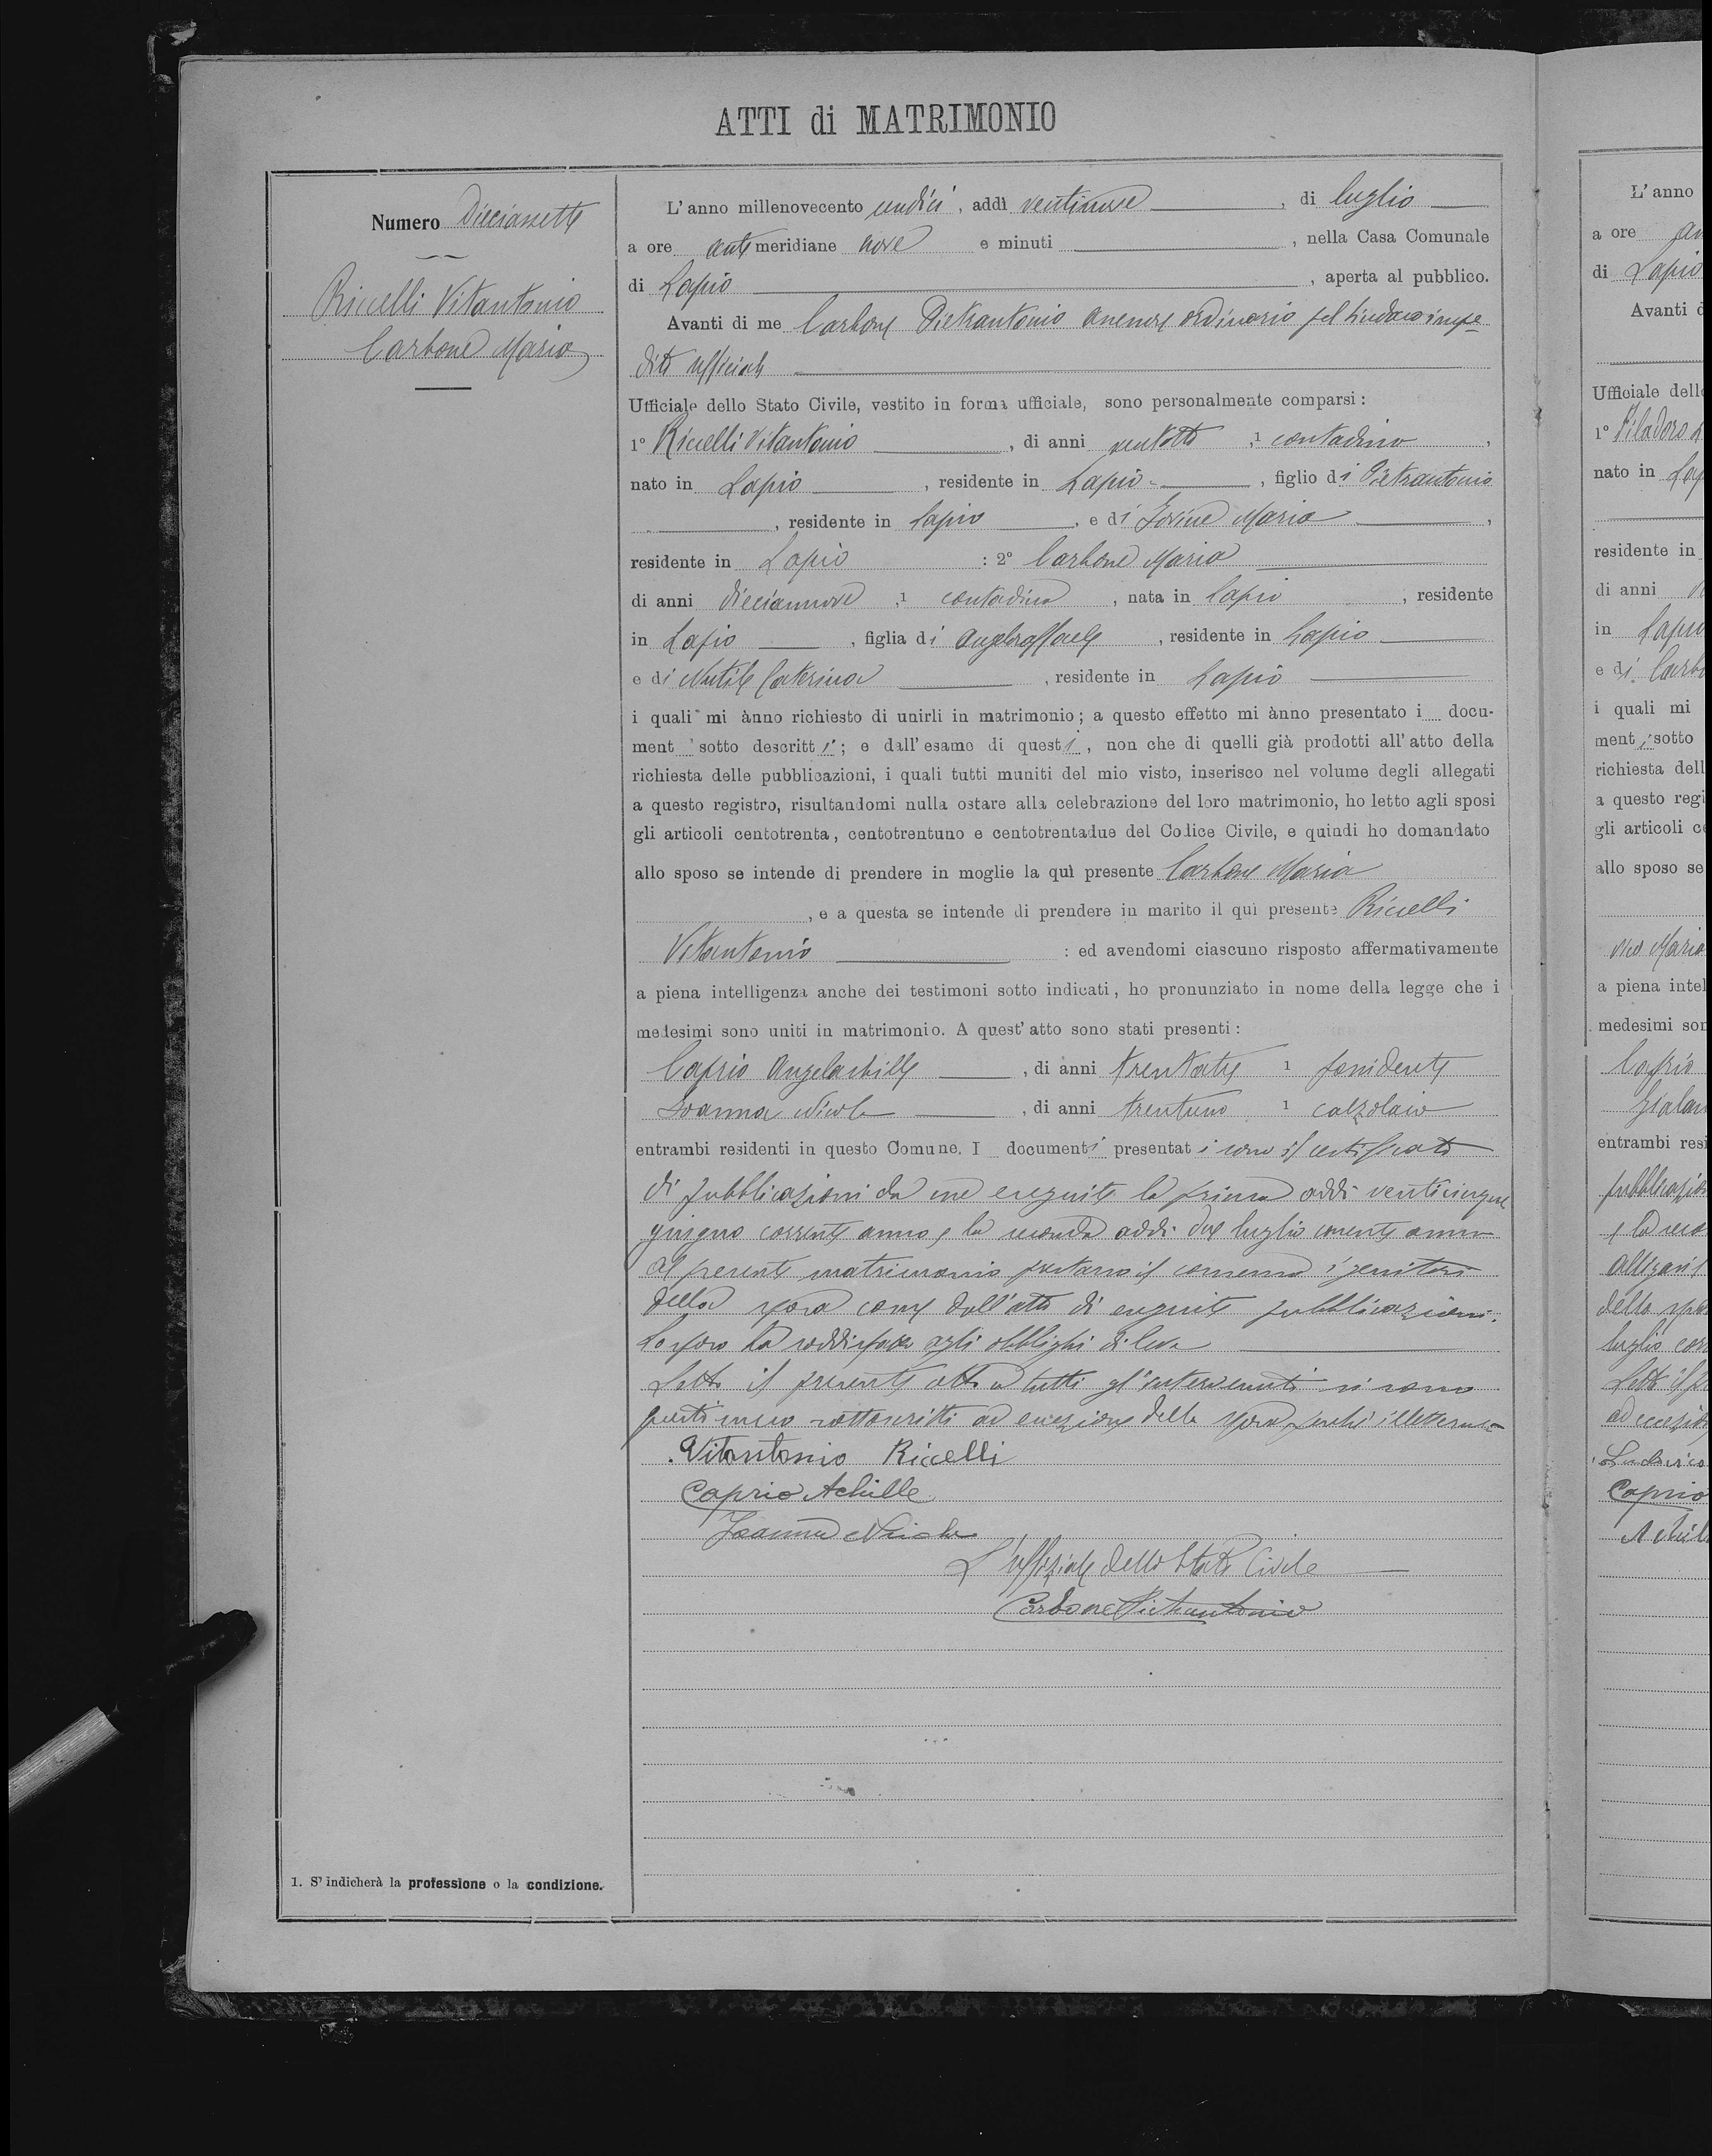 ATTI di MATRIMONIO
Numero Diciassette
Riccelli Vitantonio
Carbone Maria
L'anno millenovecento undici, addì ventinove, di luglio
a ore anti meridiane nove e minuti, nella Casa Comunale
di Lapio, aperta al pubblico.
Avanti di me Carbone Pietrantonio assessore ordinario pel sindaco impe
dito ufficiale
Ufficiale dello Stato Civile, vestito in forma ufficiale, sono personalmente comparsi:
1° Riccelli Vitantonio, di anni ventotto, 1 contadino,
nato in Lapio, residente in Lapio, figlio di Pietrantonio
, residente in Lapio, e di Iovine Maria,
residente in Lapio : 2° Carbone Maria
di anni diciannove, 1 contadina, nata in Lapio, residente
in Lapio, figlia di Angeloraffaele, residente in Lapio
e di Nutile Caterina, residente in Lapio
i quali mi ànno richiesto di unirli in matrimonio; a questo effetto mi ànno presentato i docu-
ment sotto descritt i; e dall'esame di quest i, non che di quelli già prodotti all'atto della
richiesta delle pubblicazioni, i quali tutti muniti del mio visto, inserisco nel volume degli allegati
a questo registro, risultandomi nulla ostare alla celebrazione del loro matrimonio, ho letto agli sposi
gli articoli centotrenta, centotrentuno e centotrentadue del Codice Civile, e quindi ho domandato
allo sposo se intende di prendere in moglie la quì presente Carbone Maria
, e a questa se intende di prendere in marito il quì presente Riccelli
Vitantonio : ed avendomi ciascuno risposto affermativamente
a piena intelligenza anche dei testimoni sotto indicati, ho pronunziato in nome della legge che i
medesimi sono uniti in matrimonio. A quest'atto sono stati presenti:
Caprio Angelachille, di anni trentatre 1 possidente
Ioanna Nicola, di anni trentuno 1 calzolaio
entrambi residenti in questo Comune. I documenti presentat i sono il certificato
di pubblicazioni da me eseguite la prima addi venticinque
giugno corrente anno e la seconda addi due luglio corrente anno
Al presente matrimonio prestano il consenso i genitori
della sposa come dall'atto di eseguite pubblicazioni.
Lo sposo ha soddisfatto agli obblighi di leva
Letto il presente atto a tutti gl'intervenuti si sono
questi meco sottoscritti ad eccezione della sposa perchè illetterata
Vitantonio Riccelli
Caprio Achille
Ioanna Nicola
L'uffiziale dello Stato Civile
Carbone Pietrantonio
1. S'indicherà la professione o la condizione.
L'anno
a ore
di Lapio
Avanti
Ufficiale dell
1°
nato in
residente in
di anni
in Lapio
e di
i quali mi
ment i sotto
richiesta dell
a questo regi
gli articoli
allo sposo se
Maria
a piena intel
medesimi son
Caprio
entrambi resi
e la
della
luglio
Letto il
Caprio